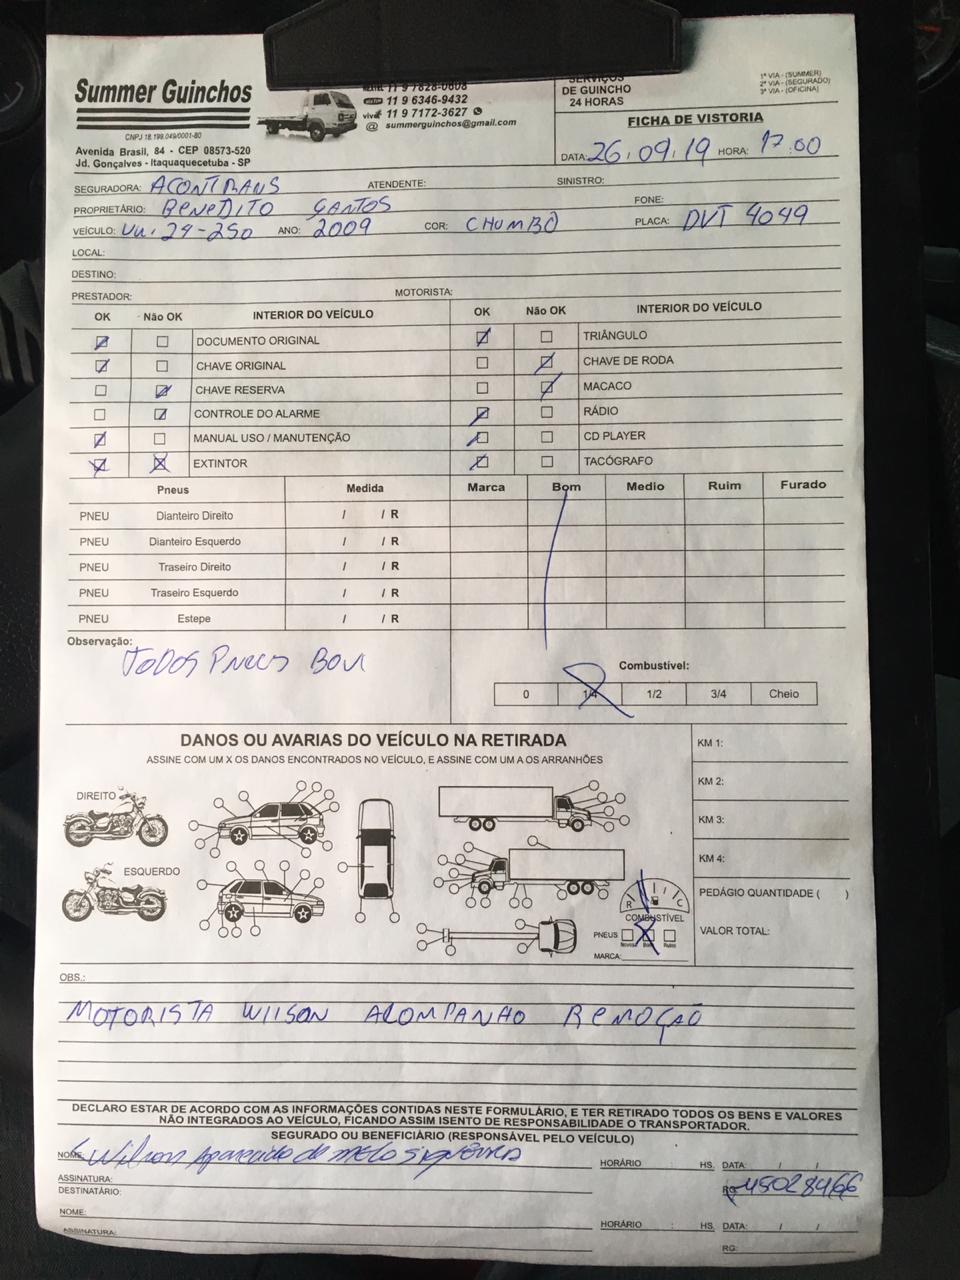 Summer Guinchos
CNPJ 18.199.049/0001-80
Avenida Brasil, 84 - CEP 08573-520
Jd. Gonçalves - Itaquaquecetuba - SP
11 9 7828-0608
11 9 6346-9432
vivo 11 9 7172-3627
@ summerguinchos@gmail.com
SERVIÇOS
DE GUINCHO
24 HORAS
1ª VIA - (SUMMER)
2ª VIA - (SEGURADO)
3ª VIA - (OFICINA)
FICHA DE VISTORIA
DATA: 26/09/19 HORA: 17:00
SEGURADORA: ACONTRANS ATENDENTE: SINISTRO:
PROPRIETÁRIO: BENEDITO SANTOS FONE:
VEÍCULO: VW. 24-250 ANO: 2009 COR: CHUMBO PLACA: DVT 4049
LOCAL:
DESTINO:
PRESTADOR: MOTORISTA:
OK Não OK INTERIOR DO VEÍCULO OK Não OK INTERIOR DO VEÍCULO
DOCUMENTO ORIGINAL TRIÂNGULO
CHAVE ORIGINAL CHAVE DE RODA
CHAVE RESERVA MACACO
CONTROLE DO ALARME RÁDIO
MANUAL USO / MANUTENÇÃO CD PLAYER
EXTINTOR TACÓGRAFO
Pneus Medida Marca Bom Medio Ruim Furado
PNEU Dianteiro Direito / / R
PNEU Dianteiro Esquerdo / / R
PNEU Traseiro Direito / / R
PNEU Traseiro Esquerdo / / R
PNEU Estepe / / R
Observação:
TODOS PNEUS BOM
Combustível:
0 1/4 1/2 3/4 Cheio
DANOS OU AVARIAS DO VEÍCULO NA RETIRADA
ASSINE COM UM X OS DANOS ENCONTRADOS NO VEÍCULO, E ASSINE COM UM A OS ARRANHÕES
DIREITO
ESQUERDO
R C
COMBUSTÍVEL
PNEUS
Novos Bom Ruim
MARCA:
KM 1:
KM 2:
KM 3:
KM 4:
PEDÁGIO QUANTIDADE ( )
VALOR TOTAL:
OBS.:
MOTORISTA WILSON ACOMPANHAO REMOÇÃO
DECLARO ESTAR DE ACORDO COM AS INFORMAÇÕES CONTIDAS NESTE FORMULÁRIO, E TER RETIRADO TODOS OS BENS E VALORES
NÃO INTEGRADOS AO VEÍCULO, FICANDO ASSIM ISENTO DE RESPONSABILIDADE O TRANSPORTADOR.
SEGURADO OU BENEFICIÁRIO (RESPONSÁVEL PELO VEÍCULO)
NOME: Wilson Aparecido de melo siqueira HORÁRIO : HS. DATA: / /
ASSINATURA: RG: 45028466
DESTINATÁRIO:
NOME: HORÁRIO : HS. DATA: / /
ASSINATURA: RG: